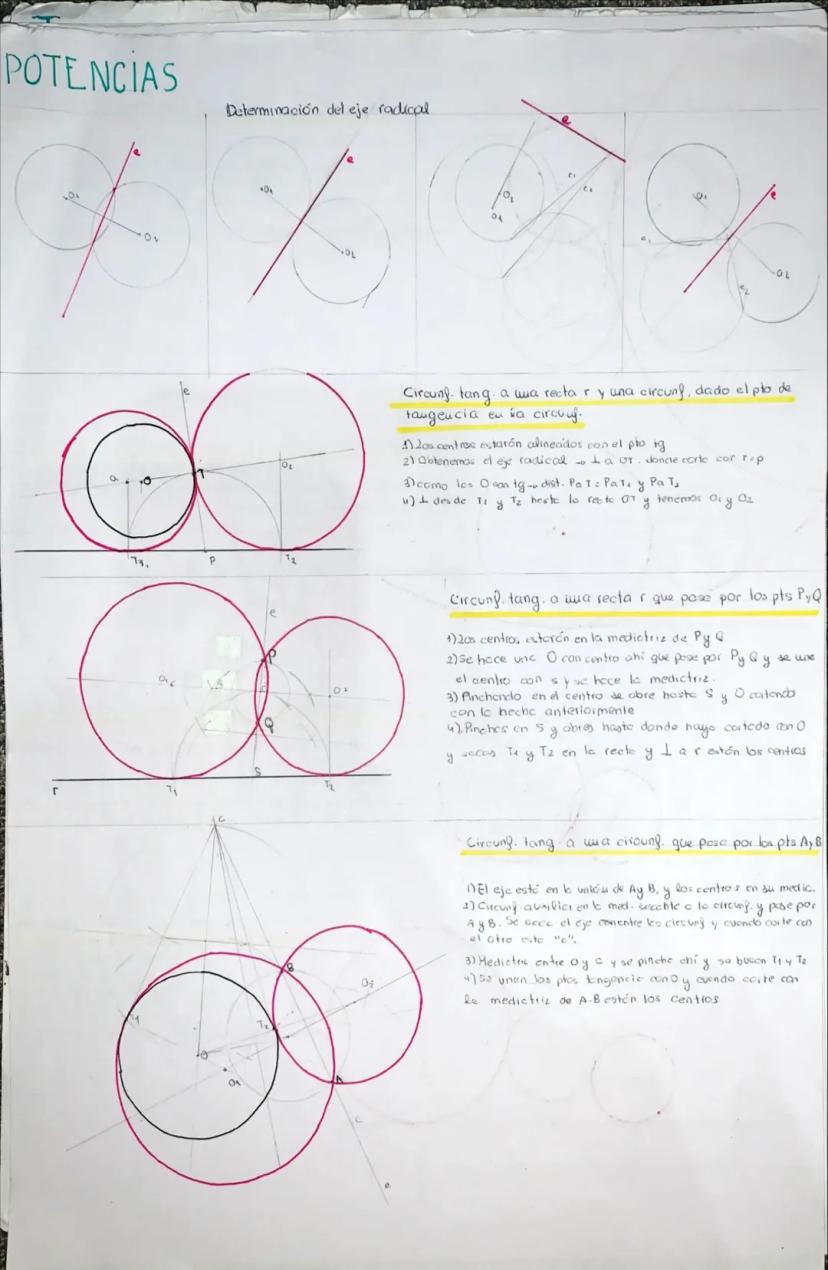 POTENCIAS
Determinación del eje radical
e
O1
O2
e
O1
O2
e
O2
O1
e1
e2
e
O1
e1
O2
e2
e
O1
O
T
O2
T1
P
T2
Circunf. tang. a una recta r y una circunf, dado el pto de
tangencia en la circunf.
1) Los centros estarán alineados con el pto tg
2) Obtenemos el eje radical → ⊥ a OT. donde corte con r=p
3) como los O son tg → dist. P a T = P a T1 y P a T2
4) ⊥ desde T1 y T2 hasta la recta OT y tenemos O1 y O2
e
P
O1
O2
Q
S
r
T1
T2
Circunf. tang. a una recta r que pase por los pts P y Q
1) Los centros estarán en la mediatriz de P y Q
2) Se hace una O con centro ahí que pase por P y Q y se une
el centro con s y se hace la mediatriz.
3) Pinchando en el centro se abre hasta S y O cortando
con lo hecho anteriormente
4) Pinchas en S y abres hasta donde haya cortado con O
y sacas T1 y T2 en la recta y ⊥ a r están los centros
C
B
O2
T1
T2
O
O1
A
c
e
Circunf. tang. a una circunf. que pase por los pts A y B
1) El eje está en la unión de A y B, y los centros en su medic.
2) Circunf. auxiliar en la med. secante a la circunf. y pase por
A y B. Se saca el eje con entre las circunf y cuando corte con
el otro esta "c".
3) Mediatriz entre O y C y se pincha ahí y se buscan T1 y T2
4) Se unen los ptos tangencia con O y cuando corte con
la mediatriz de A-B están los centros